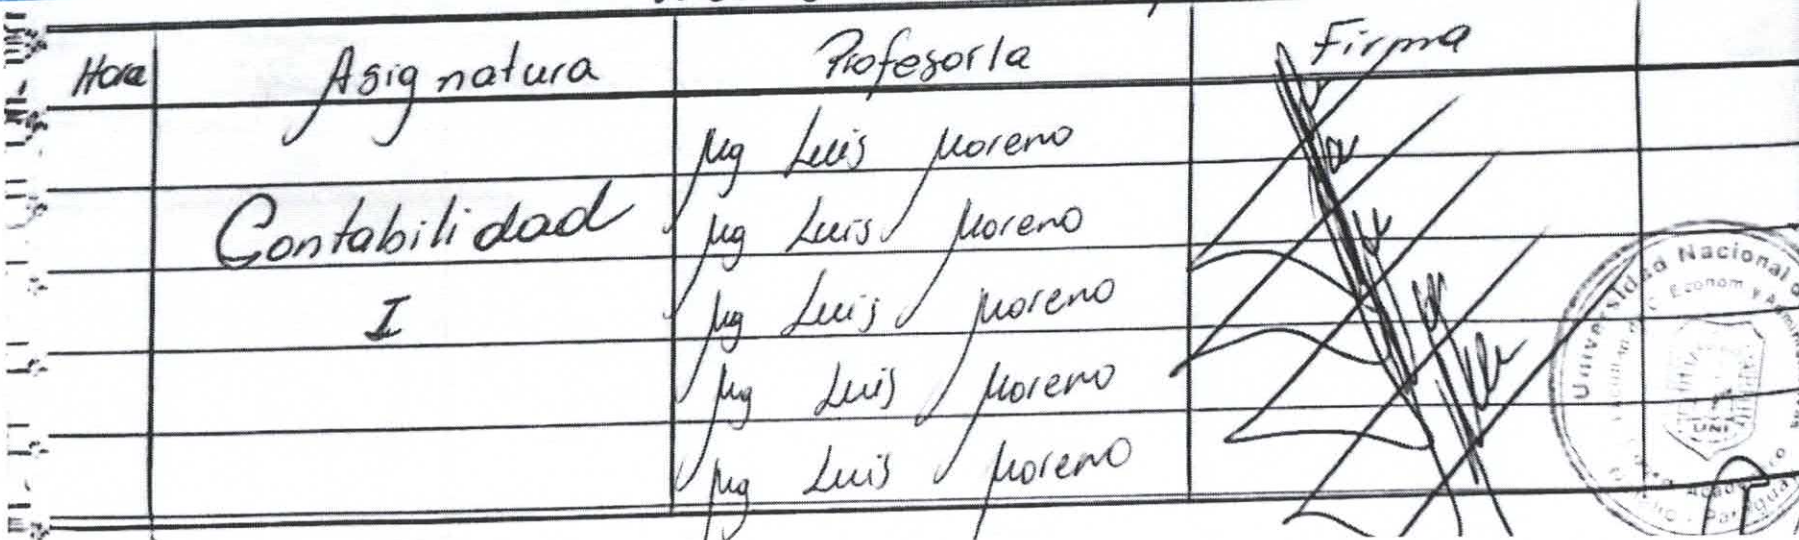 Hora Asignatura Profesor/a Firma
Mg Luis Moreno
Contabilidad Mg Luis Moreno
I Mg Luis Moreno
Mg Luis Moreno
Mg Luis Moreno
Universidad Nacional d
Econom y Admin
UNI
Paraguay